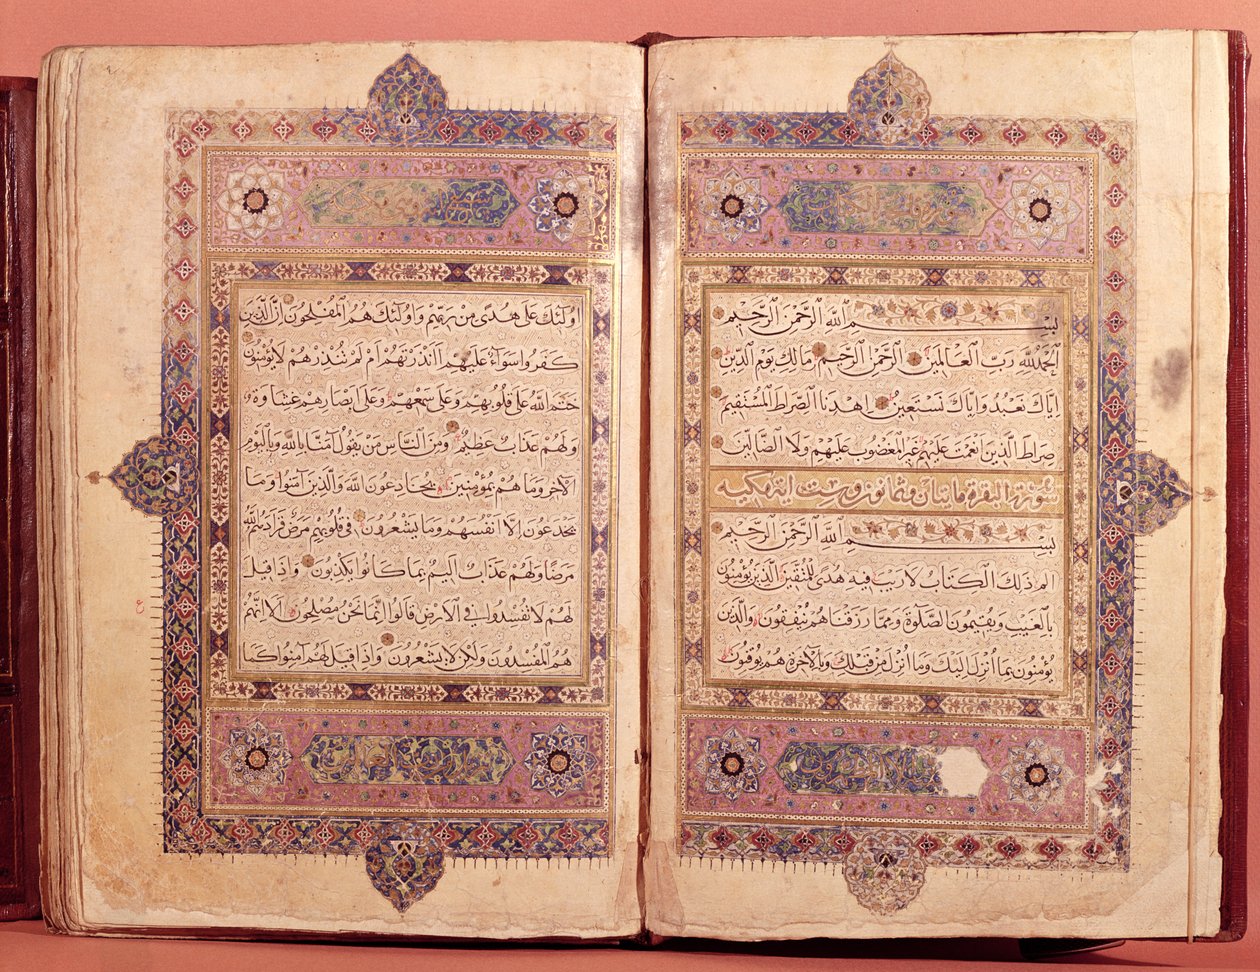 بِسْمِ اللهِ الرَّحْمٰنِ الرَّحِيْمِ
اَلْحَمْدُ لِلّٰهِ رَبِّ الْعَالَمِيْنَ الرَّحْمٰنِ الرَّحِيْمِ مَالِكِ يَوْمِ الدِّيْنِ
اِيَّاكَ نَعْبُدُ وَاِيَّاكَ نَسْتَعِيْنُ اِهْدِنَا الصِّرَاطَ الْمُسْتَقِيْمَ
صِرَاطَ الَّذِيْنَ اَنْعَمْتَ عَلَيْهِمْ غَيْرِ الْمَغْضُوْبِ عَلَيْهِمْ وَلَا الضَّالِّيْنَ
سورة البقرة مايتان وثمانون وست اية مكيه
بِسْمِ اللهِ الرَّحْمٰنِ الرَّحِيْمِ
الم ذٰلِكَ الْكِتَابُ لَا رَيْبَ فِيْهِ هُدًى لِلْمُتَّقِيْنَ الَّذِيْنَ يُؤْمِنُوْنَ
بِالْغَيْبِ وَيُقِيْمُوْنَ الصَّلٰوةَ وَمِمَّا رَزَقْنَاهُمْ يُنْفِقُوْنَ وَالَّذِيْنَ
يُؤْمِنُوْنَ بِمَا اُنْزِلَ اِلَيْكَ وَمَا اُنْزِلَ مِنْ قَبْلِكَ وَبِالْاٰخِرَةِ هُمْ يُوْقِنُوْنَ
اُولٰئِكَ عَلٰى هُدًى مِنْ رَبِّهِمْ وَاُولٰئِكَ هُمُ الْمُفْلِحُوْنَ اِنَّ الَّذِيْنَ
كَفَرُوْا سَوَاءٌ عَلَيْهِمْ ءَاَنْذَرْتَهُمْ اَمْ لَمْ تُنْذِرْهُمْ لَا يُؤْمِنُوْنَ
خَتَمَ اللهُ عَلٰى قُلُوْبِهِمْ وَعَلٰى سَمْعِهِمْ وَعَلٰى اَبْصَارِهِمْ غِشَاوَةٌ
وَلَهُمْ عَذَابٌ عَظِيْمٌ وَمِنَ النَّاسِ مَنْ يَقُوْلُ اٰمَنَّا بِاللهِ وَبِالْيَوْمِ
الْاٰخِرِ وَمَا هُمْ بِمُؤْمِنِيْنَ يُخَادِعُوْنَ اللهَ وَالَّذِيْنَ اٰمَنُوْا وَمَا
يَخْدَعُوْنَ اِلَّا اَنْفُسَهُمْ وَمَا يَشْعُرُوْنَ فِيْ قُلُوْبِهِمْ مَرَضٌ فَزَادَهُمُ اللهُ
مَرَضًا وَلَهُمْ عَذَابٌ اَلِيْمٌ بِمَا كَانُوْا يَكْذِبُوْنَ وَاِذَا قِيْلَ
لَهُمْ لَا تُفْسِدُوْا فِي الْاَرْضِ قَالُوْا اِنَّمَا نَحْنُ مُصْلِحُوْنَ اَلَا اِنَّهُمْ
هُمُ الْمُفْسِدُوْنَ وَلٰكِنْ لَا يَشْعُرُوْنَ وَاِذَا قِيْلَ لَهُمْ اٰمِنُوْا كَمَا